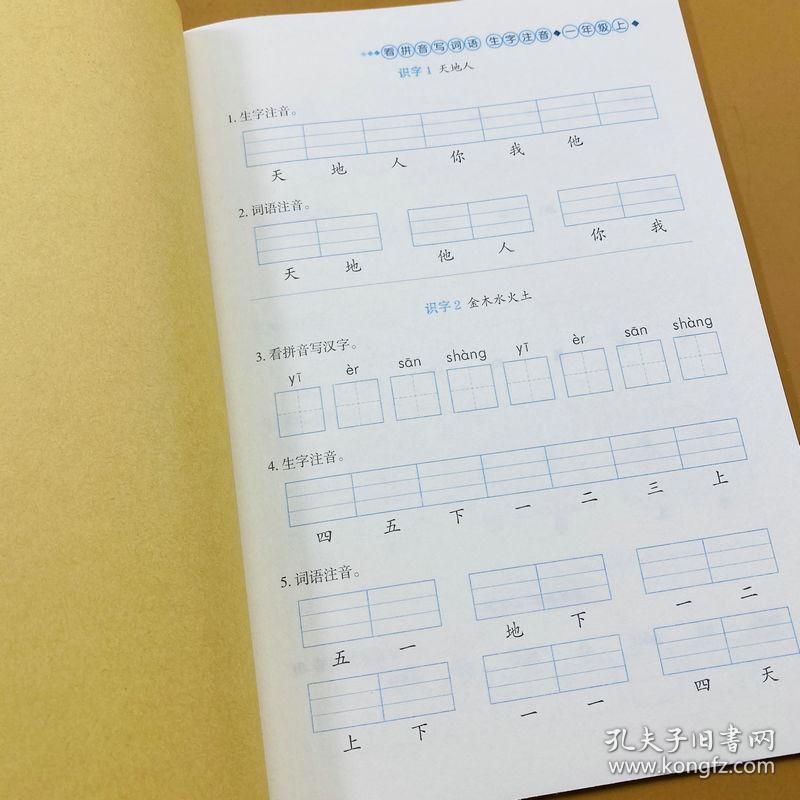 看拼音写词语 生字注音◆一年级上
识字1 天地人
1. 生字注音。
天 地 人 你 我 他
2. 词语注音。
天 地 他 人 你 我
识字2 金木水火土
3. 看拼音写汉字。
yī èr sān shàng yī èr sān shàng
4. 生字注音。
四 五 下 一 二 三 上
5. 词语注音。
五 一 地 下 一 二
上 下 一 一 四 天
孔夫子旧书网
www.kongfz.com